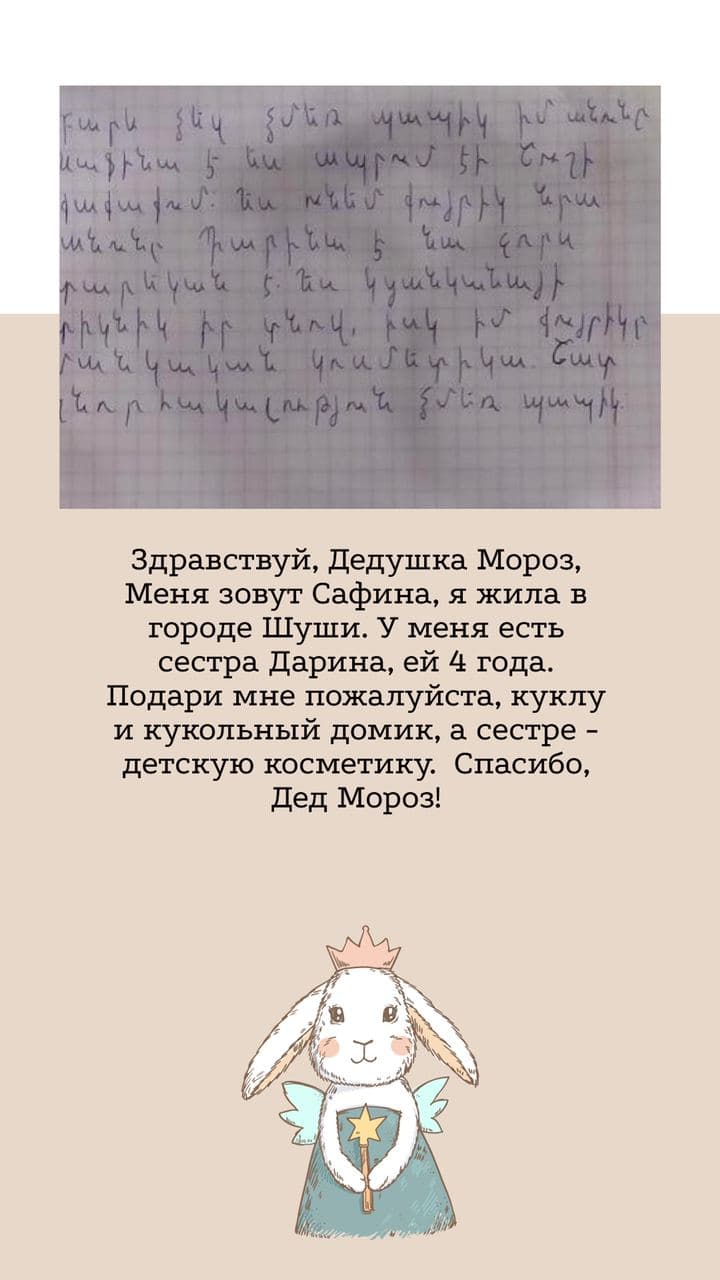 Բարև ձեզ ձմեռ պապիկ իմ անունը
Սաֆինա է ես ապրում էի Շուշի
քաղաքում: Ես ունեմ քույրիկ նրա
անունը Դարինա է նա չորս
տարեկան է. Ես կցանկանայի
տիկնիկ իր տնով, իսկ իմ քույրիկը
մանկական կոսմետիկա. Շատ
շնորհակալություն ձմեռ պապիկ.
Здравствуй, Дедушка Мороз,
Меня зовут Сафина, я жила в
городе Шуши. У меня есть
сестра Дарина, ей 4 года.
Подари мне пожалуйста, куклу
и кукольный домик, а сестре -
детскую косметику. Спасибо,
Дед Мороз!